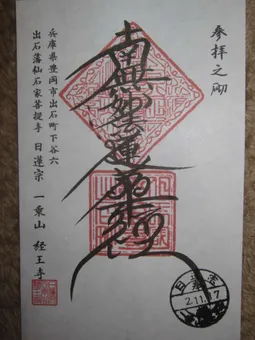 参拝之砌
南無妙法蓮華経
兵庫県豊岡市出石町下谷六
出石藩仙石家菩提寺 日蓮宗 一東山 経王寺
2.11.17